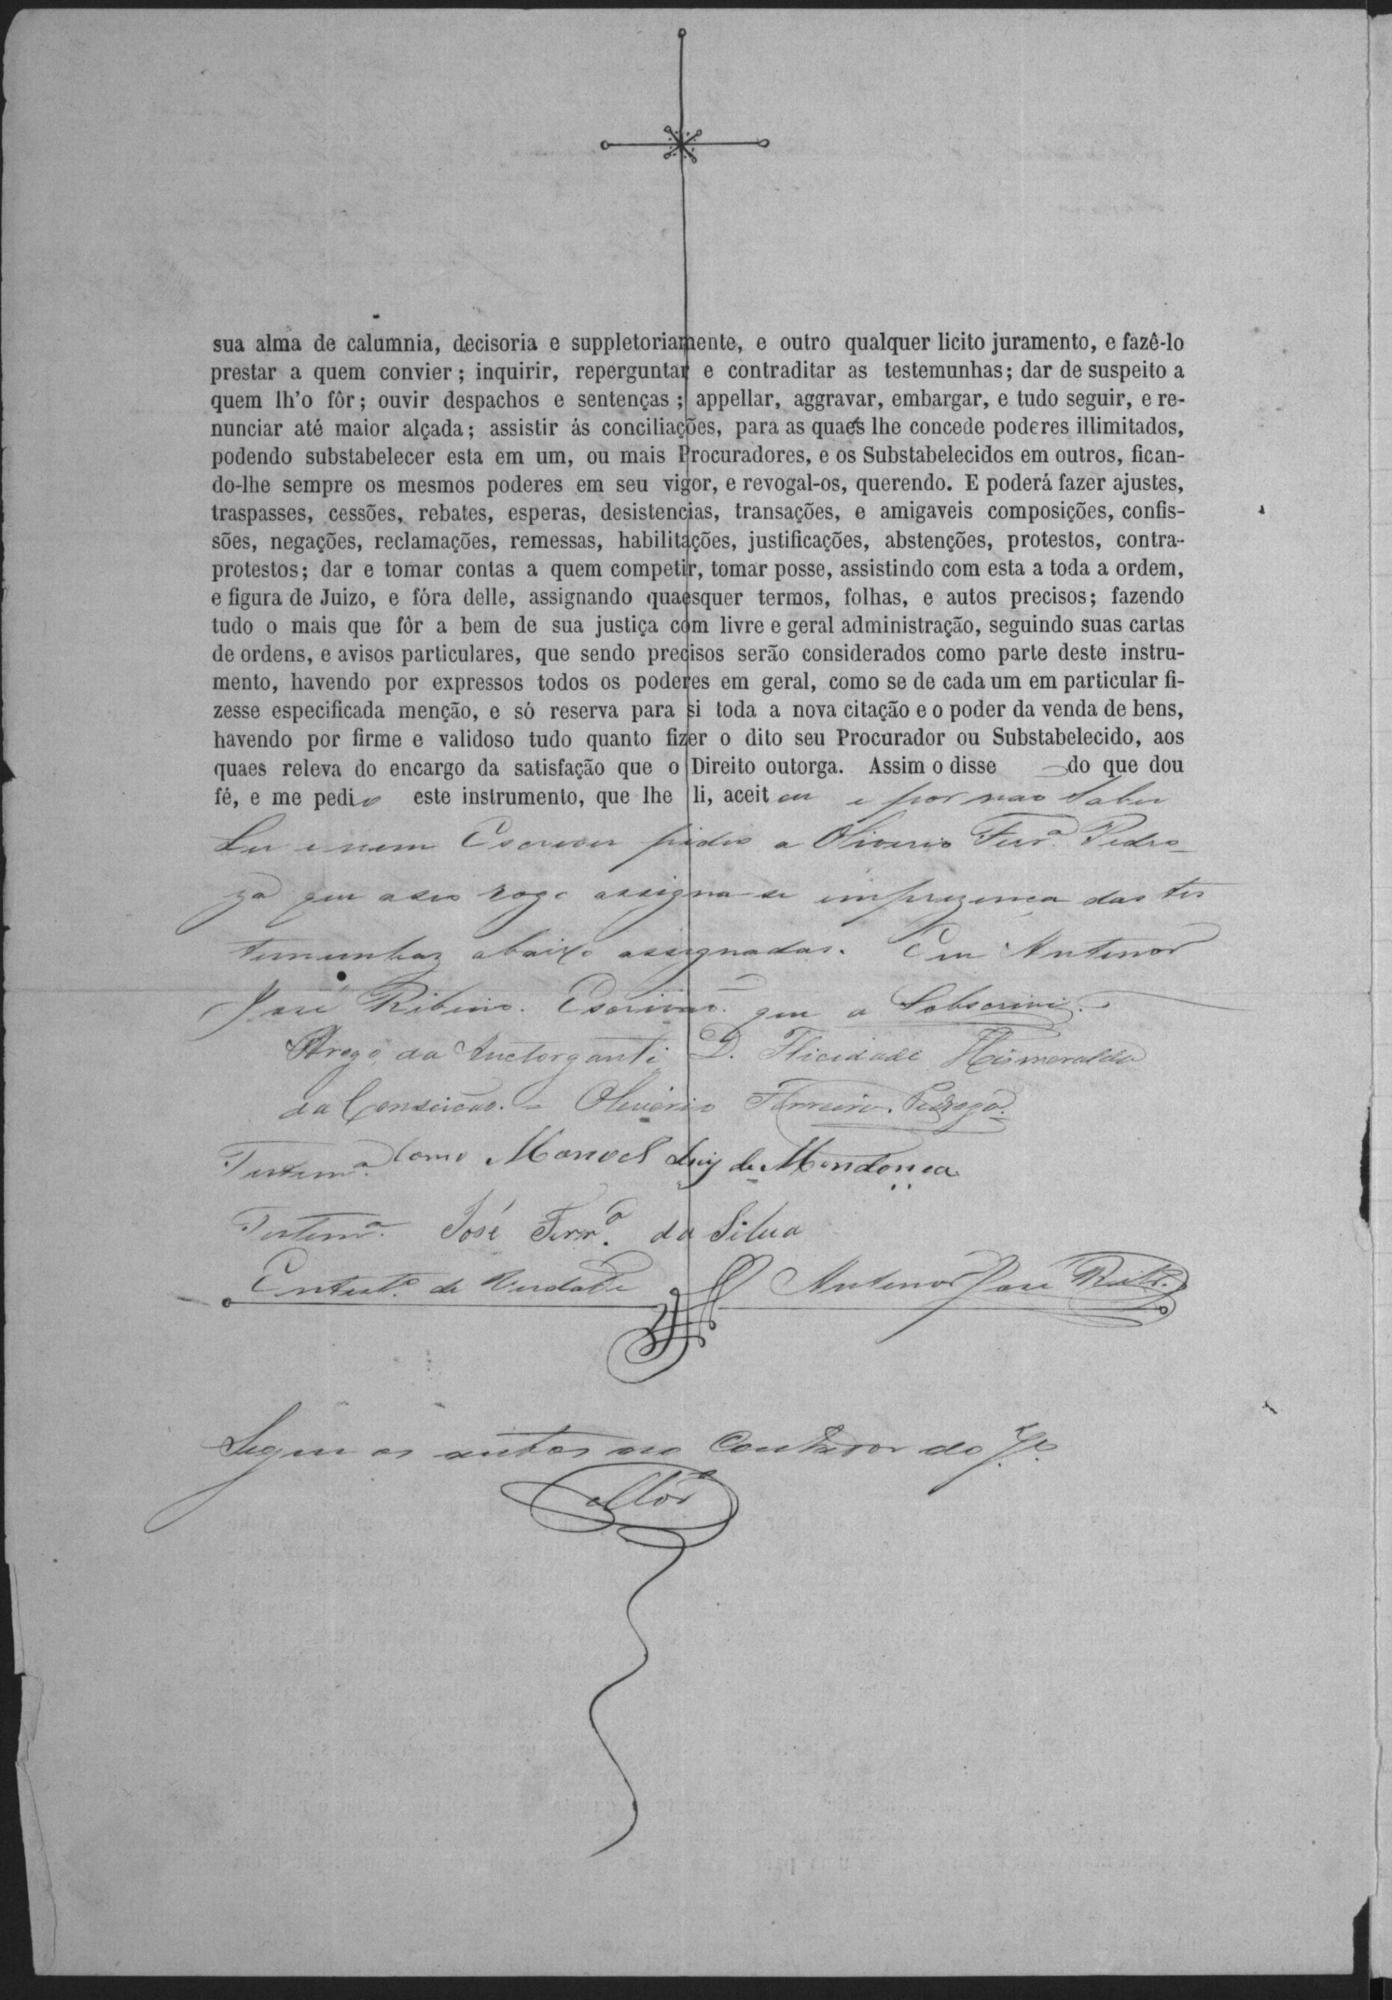 sua alma de calumnia, decisoria e suppletoriamente, e outro qualquer licito juramento, e fazê-lo
prestar a quem convier; inquirir, reperguntar e contraditar as testemunhas; dar de suspeito a
quem lh'o fôr; ouvir despachos e sentenças; appellar, aggravar, embargar, e tudo seguir, e re-
nunciar até maior alçada; assistir ás conciliações, para as quaes lhe concede poderes illimitados,
podendo substabelecer esta em um, ou mais Procuradores, e os Substabelecidos em outros, fican-
do-lhe sempre os mesmos poderes em seu vigor, e revogal-os, querendo. E poderá fazer ajustes,
traspasses, cessões, rebates, esperas, desistencias, transações, e amigaveis composições, confis-
sões, negações, reclamações, remessas, habilitações, justificações, abstenções, protestos, contra-
protestos; dar e tomar contas a quem competir, tomar posse, assistindo com esta a toda a ordem,
e figura de Juizo, e fóra delle, assignando quaesquer termos, folhas, e autos precisos; fazendo
tudo o mais que fôr a bem de sua justiça com livre e geral administração, seguindo suas cartas
de ordens, e avisos particulares, que sendo precisos serão considerados como parte deste instru-
mento, havendo por expressos todos os poderes em geral, como se de cada um em particular fi-
zesse especificada menção, e só reserva para si toda a nova citação e o poder da venda de bens,
havendo por firme e validoso tudo quanto fizer o dito seu Procurador ou Substabelecido, aos
quaes releva do encargo da satisfação que o Direito outorga. Assim o disse do que dou
fé, e me pedio este instrumento, que lhe li, aceitou e por nao saber
Ler e nem Escrever pidio a Oliverio Ferr.ª Pedro-
za que aseo rogo assigna-se emprezença das tes
temunhaz abaixo assignadas. Eu Antenor
José Ribeiro. Escrivão que a Sobscrivi.
Arogo da Auctorganti D. Flicidade Hismeralda
da Conceicão. - Oliverio Ferreira Pedroza.
Testem.ª Como Manoel Luiz de Mendonça
Testem.ª José Ferr.ª da Silva
Entest.º da Verdade Antenor José Ribr.º
Sigão os autos ao Contador do J.º